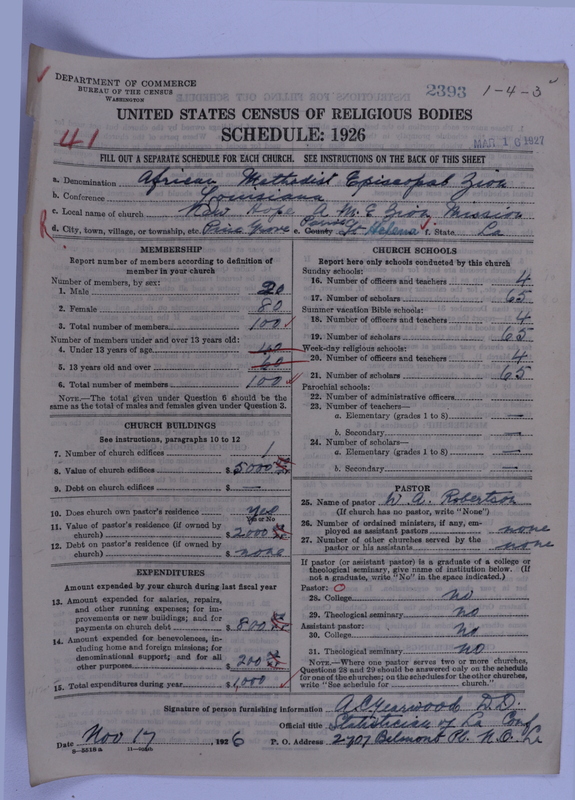 DEPARTMENT OF COMMERCE
BUREAU OF THE CENSUS
WASHINGTON
2393 1-4-3
UNITED STATES CENSUS OF RELIGIOUS BODIES
SCHEDULE: 1926
41
MAR 16 1927
FILL OUT A SEPARATE SCHEDULE FOR EACH CHURCH. SEE INSTRUCTIONS ON THE BACK OF THIS SHEET
a. Denomination African Methodist Episcopal Zion
b. Conference Louisiana
c. Local name of church New Hope A. M. E. Zion Mission
R d. City, town, village, or township, etc. Pine Grove e. County St Helena f. State La
MEMBERSHIP
Report number of members according to definition of
member in your church
Number of members, by sex:
1. Male 20
2. Female 80
3. Total number of members 100
Number of members under and over 13 years old:
4. Under 13 years of age 40
5. 13 years old and over 60
6. Total number of members 100
NOTE.—The total given under Question 6 should be
same as the total of males and females given under Question 3.
CHURCH BUILDINGS
See instructions, paragraphs 10 to 12
7. Number of church edifices 1
8. Value of church edifices $5000
9. Debt on church edifices $ —
10. Does church own pastor's residence Yes
Yes or No
11. Value of pastor's residence (if owned by
church) $2000
12. Debt on pastor's residence (if owned by
church) $none
EXPENDITURES
Amount expended by your church during last fiscal year
13. Amount expended for salaries, repairs,
and other running expenses; for im-
provements or new buildings; and for
payments on church debt $800
14. Amount expended for benevolences, in-
cluding home and foreign missions; for
denominational support; and for all
other purposes $200
15. Total expenditures during year $1,000
CHURCH SCHOOLS
Report here only schools conducted by this church
Sunday schools:
16. Number of officers and teachers 4
17. Number of scholars 65
Summer vacation Bible schools:
18. Number of officers and teachers 4
19. Number of scholars 65
Week-day religious schools:
20. Number of officers and teachers 4
21. Number of scholars 65
Parochial schools:
22. Number of administrative officers
23. Number of teachers—
a. Elementary (grades 1 to 8) —
b. Secondary —
24. Number of scholars—
a. Elementary (grades 1 to 8) —
b. Secondary —
PASTOR
25. Name of pastor W. A. Robertson
(If church has no pastor, write "None")
26. Number of ordained ministers, if any, em-
ployed as assistant pastors none
27. Number of other churches served by the
pastor or his assistants none
If pastor (or assistant pastor) is a graduate of a college or
theological seminary, give name of institution below. (If
not a graduate, write "No" in the space indicated.)
Pastor:
28. College no
29. Theological seminary no
Assistant pastor:
30. College No
31. Theological seminary no
NOTE.—Where one pastor serves two or more churches,
Questions 28 and 29 should be answered only on the schedule
for one of the churches; on the schedules for the other churches,
write "See schedule for ____ church."
Signature of person furnishing information A C Yearwood D.D.
Official title Statistician of La Conf
Date Nov 17, 1926 P. O. Address 2707 Belmont Pl. N.O. La